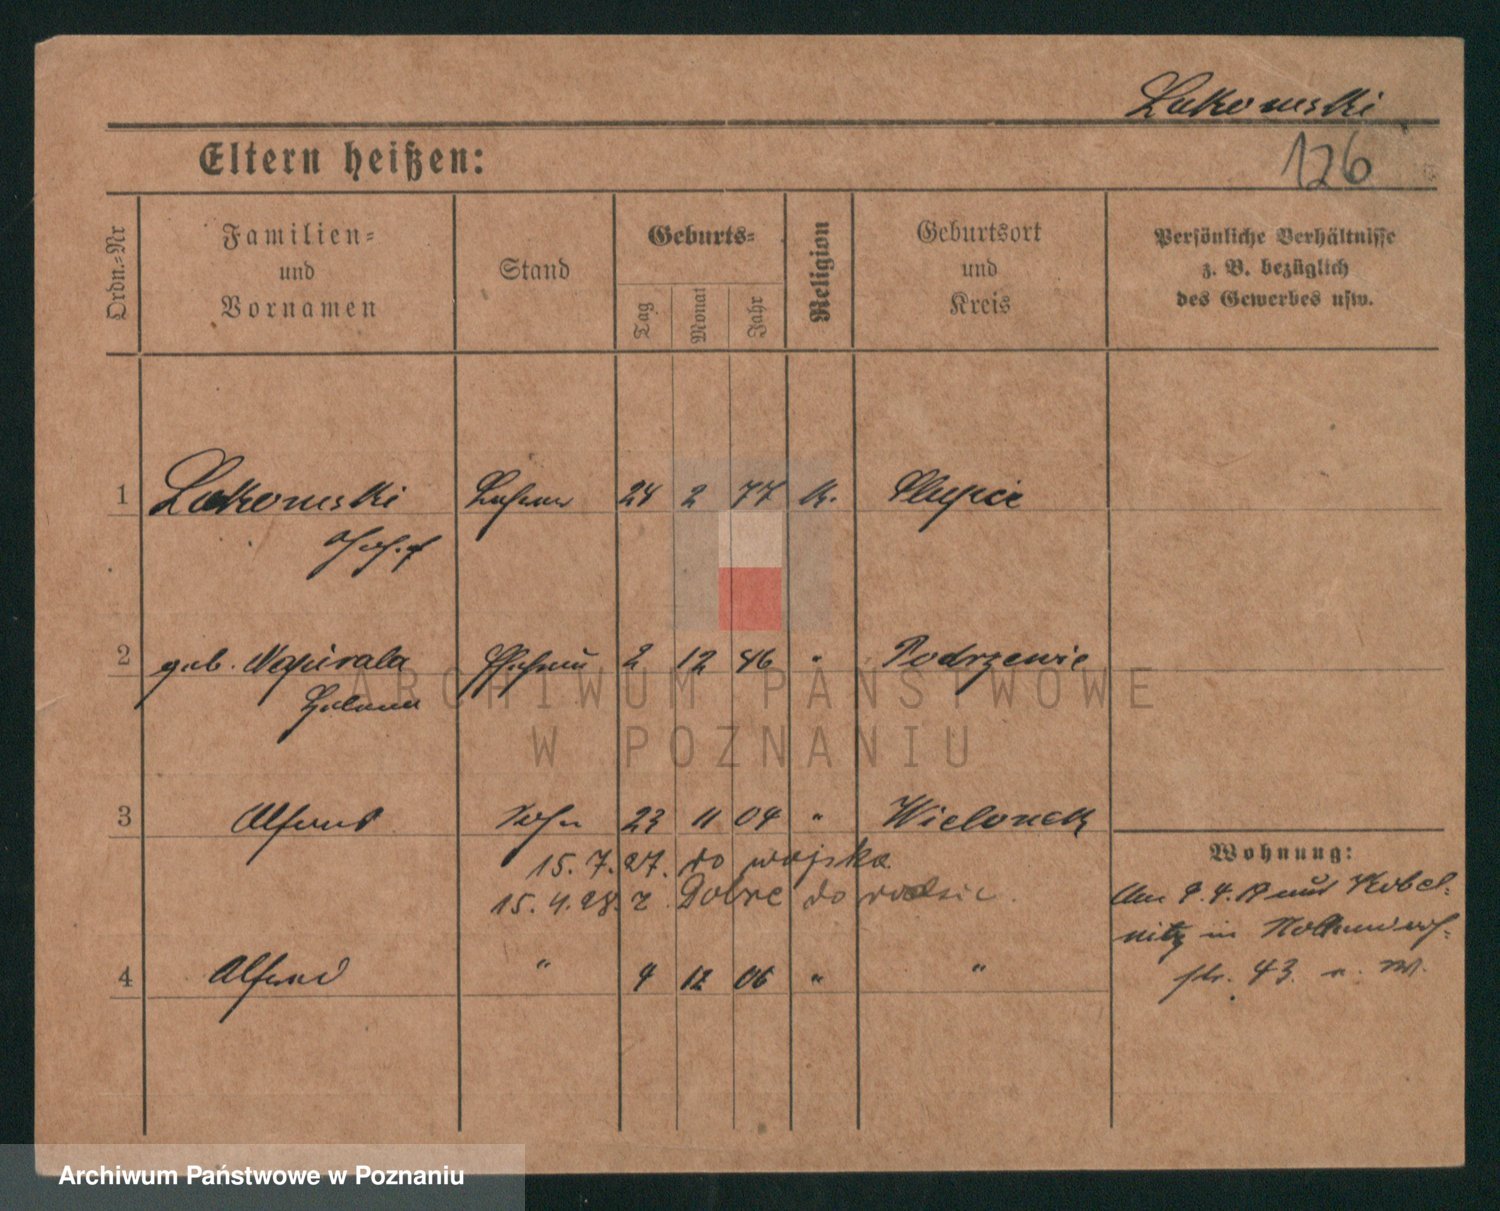 Lakomski
126
Eltern heißen:
Ordn.-Nr
Familien-
und
Vornamen
Stand
Geburts-
Tag
Monat
Jahr
Religion
Geburtsort
und
Kreis
Persönliche Verhältnisse
z. B. bezüglich
des Gewerbes usw.
1 Lakomski 24 2 77 k.
Josef
2 geb. Napierala 2 12 "  Podrzewie
3 Sohn 23 11 04 " Wielonek
15. 7. 27. do wojska
15. 4. 28. z Dobre do rodzic.
Wohnung:
Am 4. 19 aus Kobel-
nitz in
4 Alfred " 4 12 06 " "
str. 43
Archiwum Państwowe
w Poznaniu
Archiwum Państwowe w Poznaniu